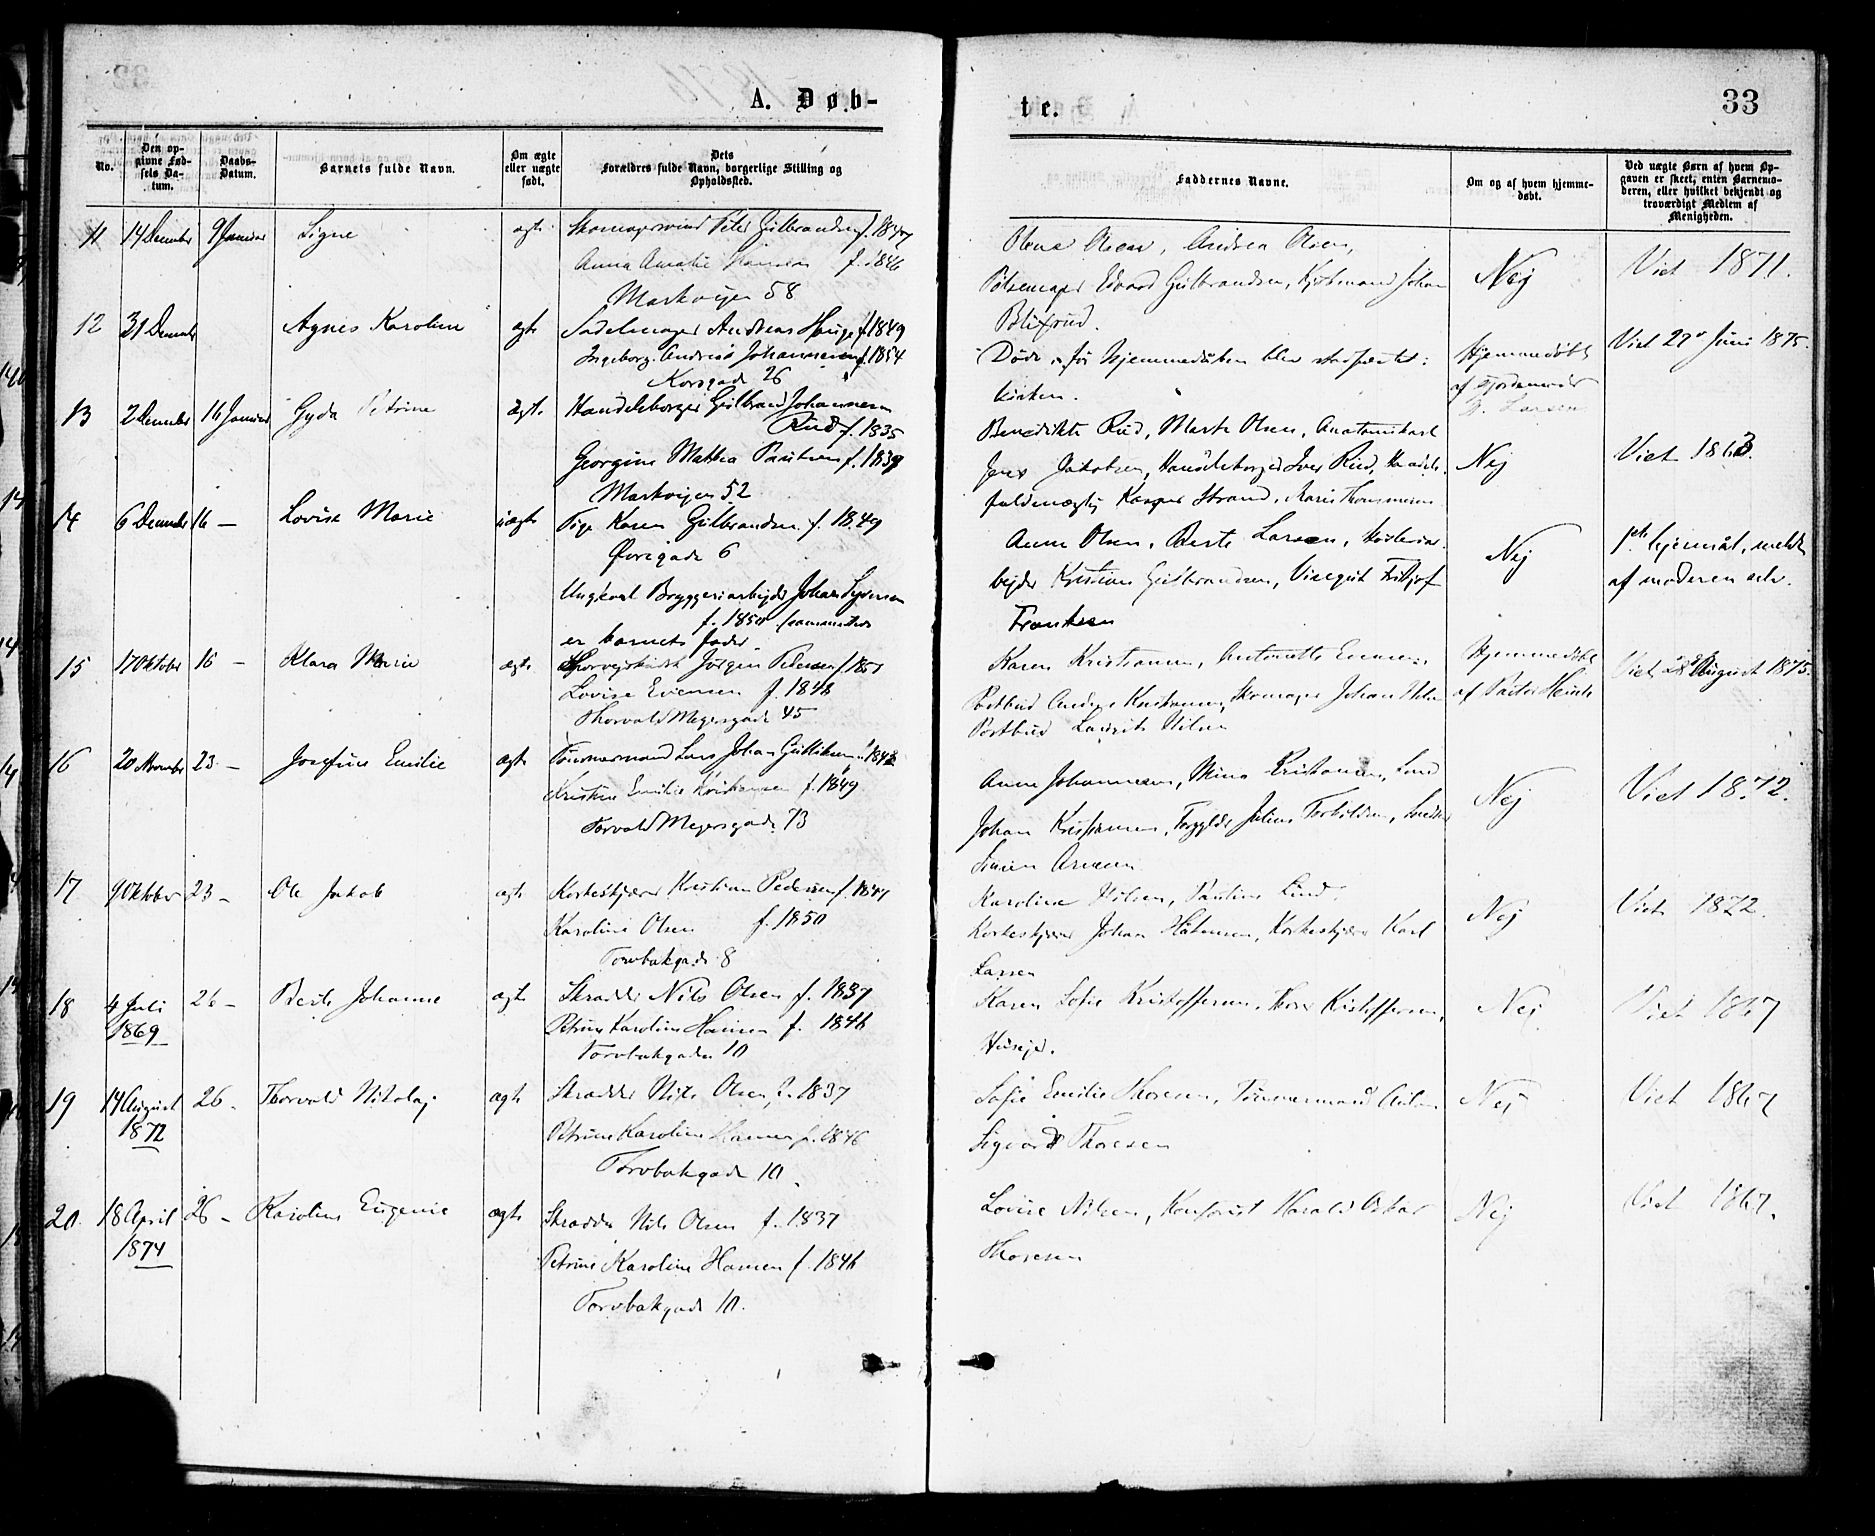 A. Døb-
No.
Den opgivne Fødsels Datum.
Daabs-Datum.
Barnets fulde Navn.
Om ægte eller uægte født.
Dets Forældres fulde Navn, borgerlige Stilling og Opholdssted.
11 14 December 9 Januar Signe ægte Skomagersvend Peter Gulbrandsen f. 1847
Anna Amalie Hansen f. 1846
Markveien 58
12 31 December Agnes Karoline ægte Sadelmager Andreas Hauge f. 1849
Ingeborg Andrea Johannesen f. 1854
Korsgade 26
13 2 December 16 Januar Gyda Petrine ægte Handelsborger Gulbrand Johannesen
Rud f. 1835
Georgine Mathea Paulsen f. 1839
Markveien 52
14 6 December 16 — Lovise Marie uægte Pige Karen Gulbrandsen f. 1849
Øvregade 6
Ungkarl Bryggeriarbejder Johan Syversen
f. 1850
er barnets fader.
15 17 Oktober 16 — Klara Marie ægte Jørgen Pedersen f. 1851
Lovise Evensen f. 1848
Thorvald Meyersgade 45
16 20 November 23 — Josefine Emilie ægte Tømmermand Lars Johan Gulliksen f. 1842
Kristine Emilie Kristiansen f. 1849
Torvald Meyersgade 73
17 9 Oktober 23 — Ole Jakob ægte Korkeskjærer Kristian Pedersen f. 1847
Karoline Olsen f. 1850
Torvbakgade 8
18 4 Juli 1869 26 — Berte Johanne ægte Skrædder Nils Olsen f. 1837
Petrine Karoline Hansen f. 1846
Torvbakgaden 10
19 14 August 1872 26 — Thorvald Nikolaj ægte Skrædder Nils Olsen f. 1837
Petrine Karoline Hansen f. 1846
Torvbakgade 10.
20. 18 April 1874 26 — Karoline Eugenie ægte Skrædder Nils Olsen f. 1837
Petrine Karoline Hansen f. 1846
Torvbakgade 10.
te.
33
Faddernes Navne.
Om og af hvem hjemmedøbt.
Ved uægte Børn af hvem Opgaven er skeet, enten Barnemoderen, eller hvilket bekjendt og troværdigt Medlem af Menigheden.
Olsen, Andrea Olsen,
Pølsemager Edvard Gulbrandsen, Johan
Blixrud.
Nej
Viet 1871.
Døde før Hjemmedåben blev
kirken.
Hjemmedøbt
af Jordemoder
Larsen
Viet 29 Juni 1875.
Benedikte Rud, Marte Olsen,
Jens Jakobsen, Handelsborger Iver Rud, Handels-
fuldmægtig Kasper Strand,
Nej
Viet 1863.
Anne Olsen, Berte Larsen,
Kristian Gulbrandsen, Fritjof
Frantsen
Nej
af moderen selv.
Karen Kristiansen, Antonette Evensen,
Postbud Anders Kristiansen, Skomager Johan Nilsen
Postbud Laurits Nilsen
Hjemmedøbt
af Pastor
Viet 28 August 1875.
Anne Johannesen, Mina Kristiansen,
Johan Kristiansen, Julius Torkildsen,
Nej
Viet 1872.
Karoline Nilsen, Pauline Lind,
Korkeskjærer Johan Håkensen, Korkeskjærer Karl
Larsen
Nej
Viet 1872.
Karen Sofie Kristoffersen, Thore Kristoffersen,
Huseier.
Nej
Viet 1867
Sofie Emilie Thoresen, Tømmermand Anton
Sigvard Thoresen
Nej
Viet 1867
Lovise Nilsen, Harald Oskar
Thoresen
Nej
Viet 1867.